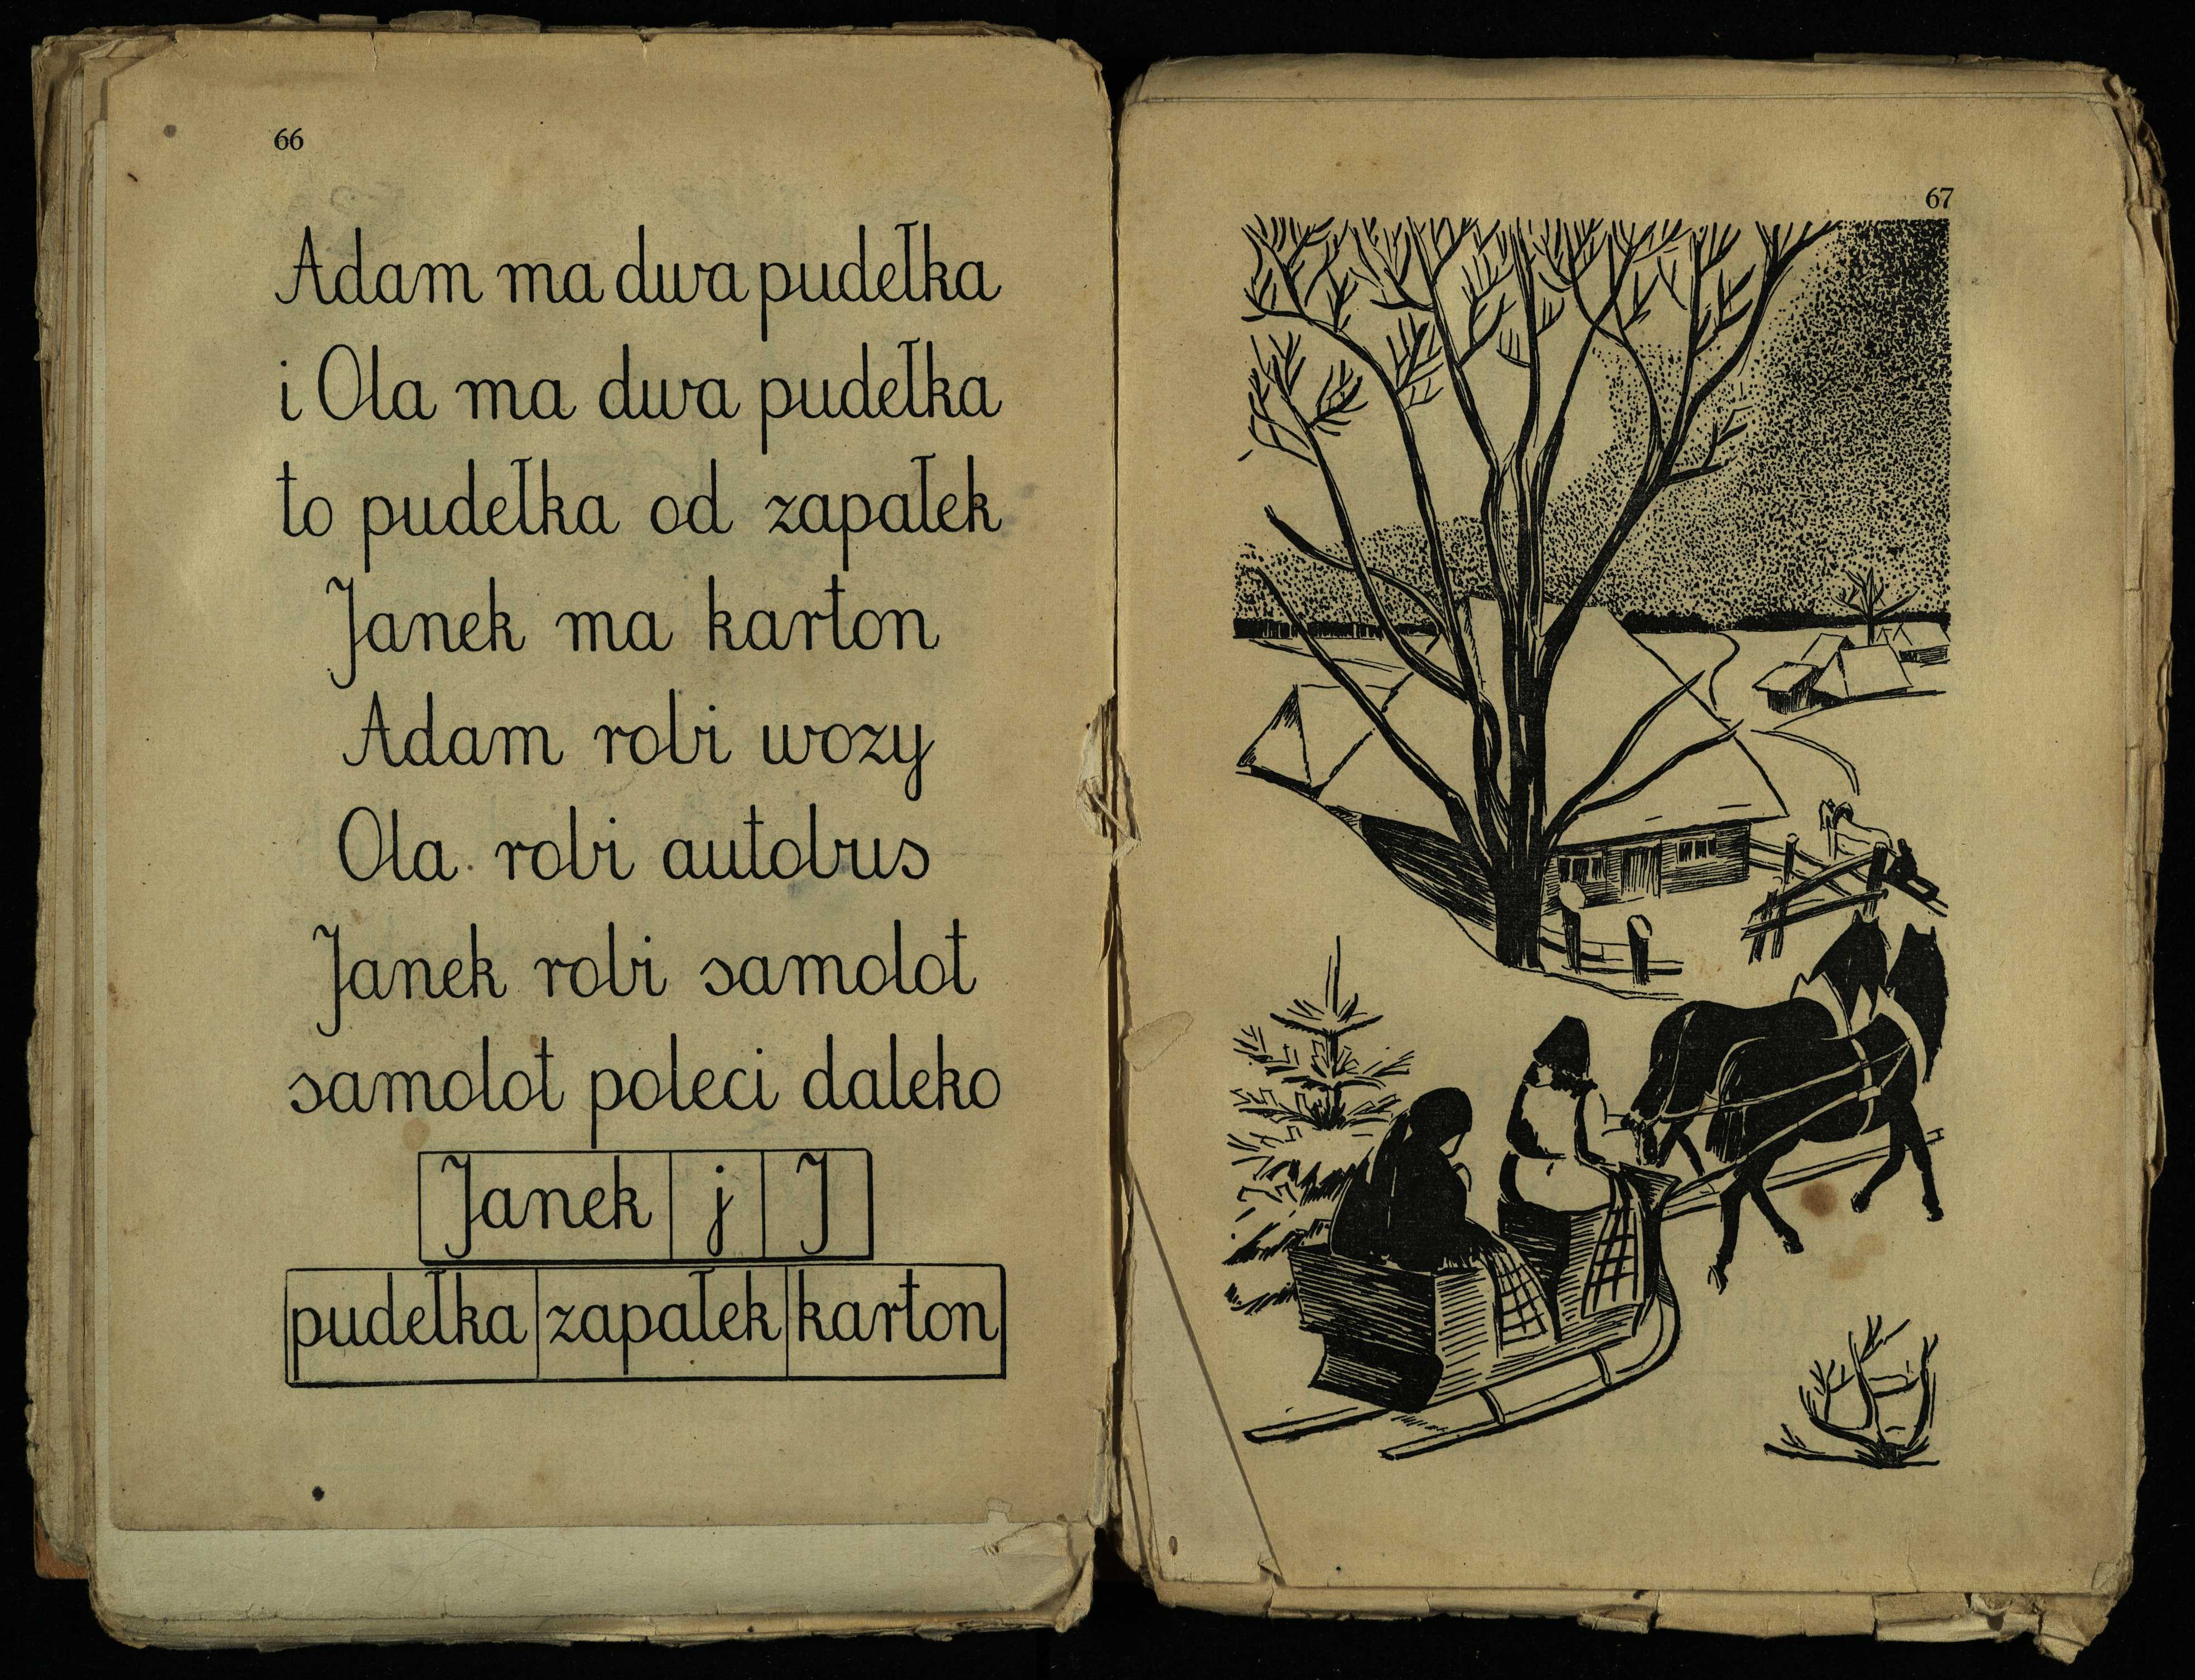 66
Adam ma dwa pudełka
i Ola ma dwa pudełka
to pudełka od zapałek
Janek ma karton
Adam robi wozy
Ola robi autobus
Janek robi samolot
samolot poleci daleko
Janek j J
pudełka zapałek karton
67